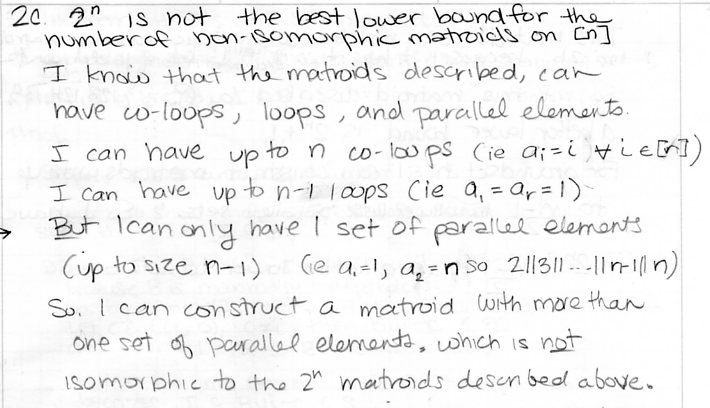 2c. 2ⁿ is not the best lower bound for the
number of non-isomorphic matroids on [n]
I know that the matroids described, can
have co-loops, loops, and parallel elements.
I can have up to n co-loops (ie aᵢ=i ∀ i ∈ [n])
I can have up to n-1 loops (ie a₁ = aᵣ = 1)
→ But I can only have 1 set of parallel elements
(up to size n-1) (ie a₁=1, a₂=n so 2||3||...||n-1||n)
So, I can construct a matroid with more than
one set of parallel elements, which is not
isomorphic to the 2ⁿ matroids described above.